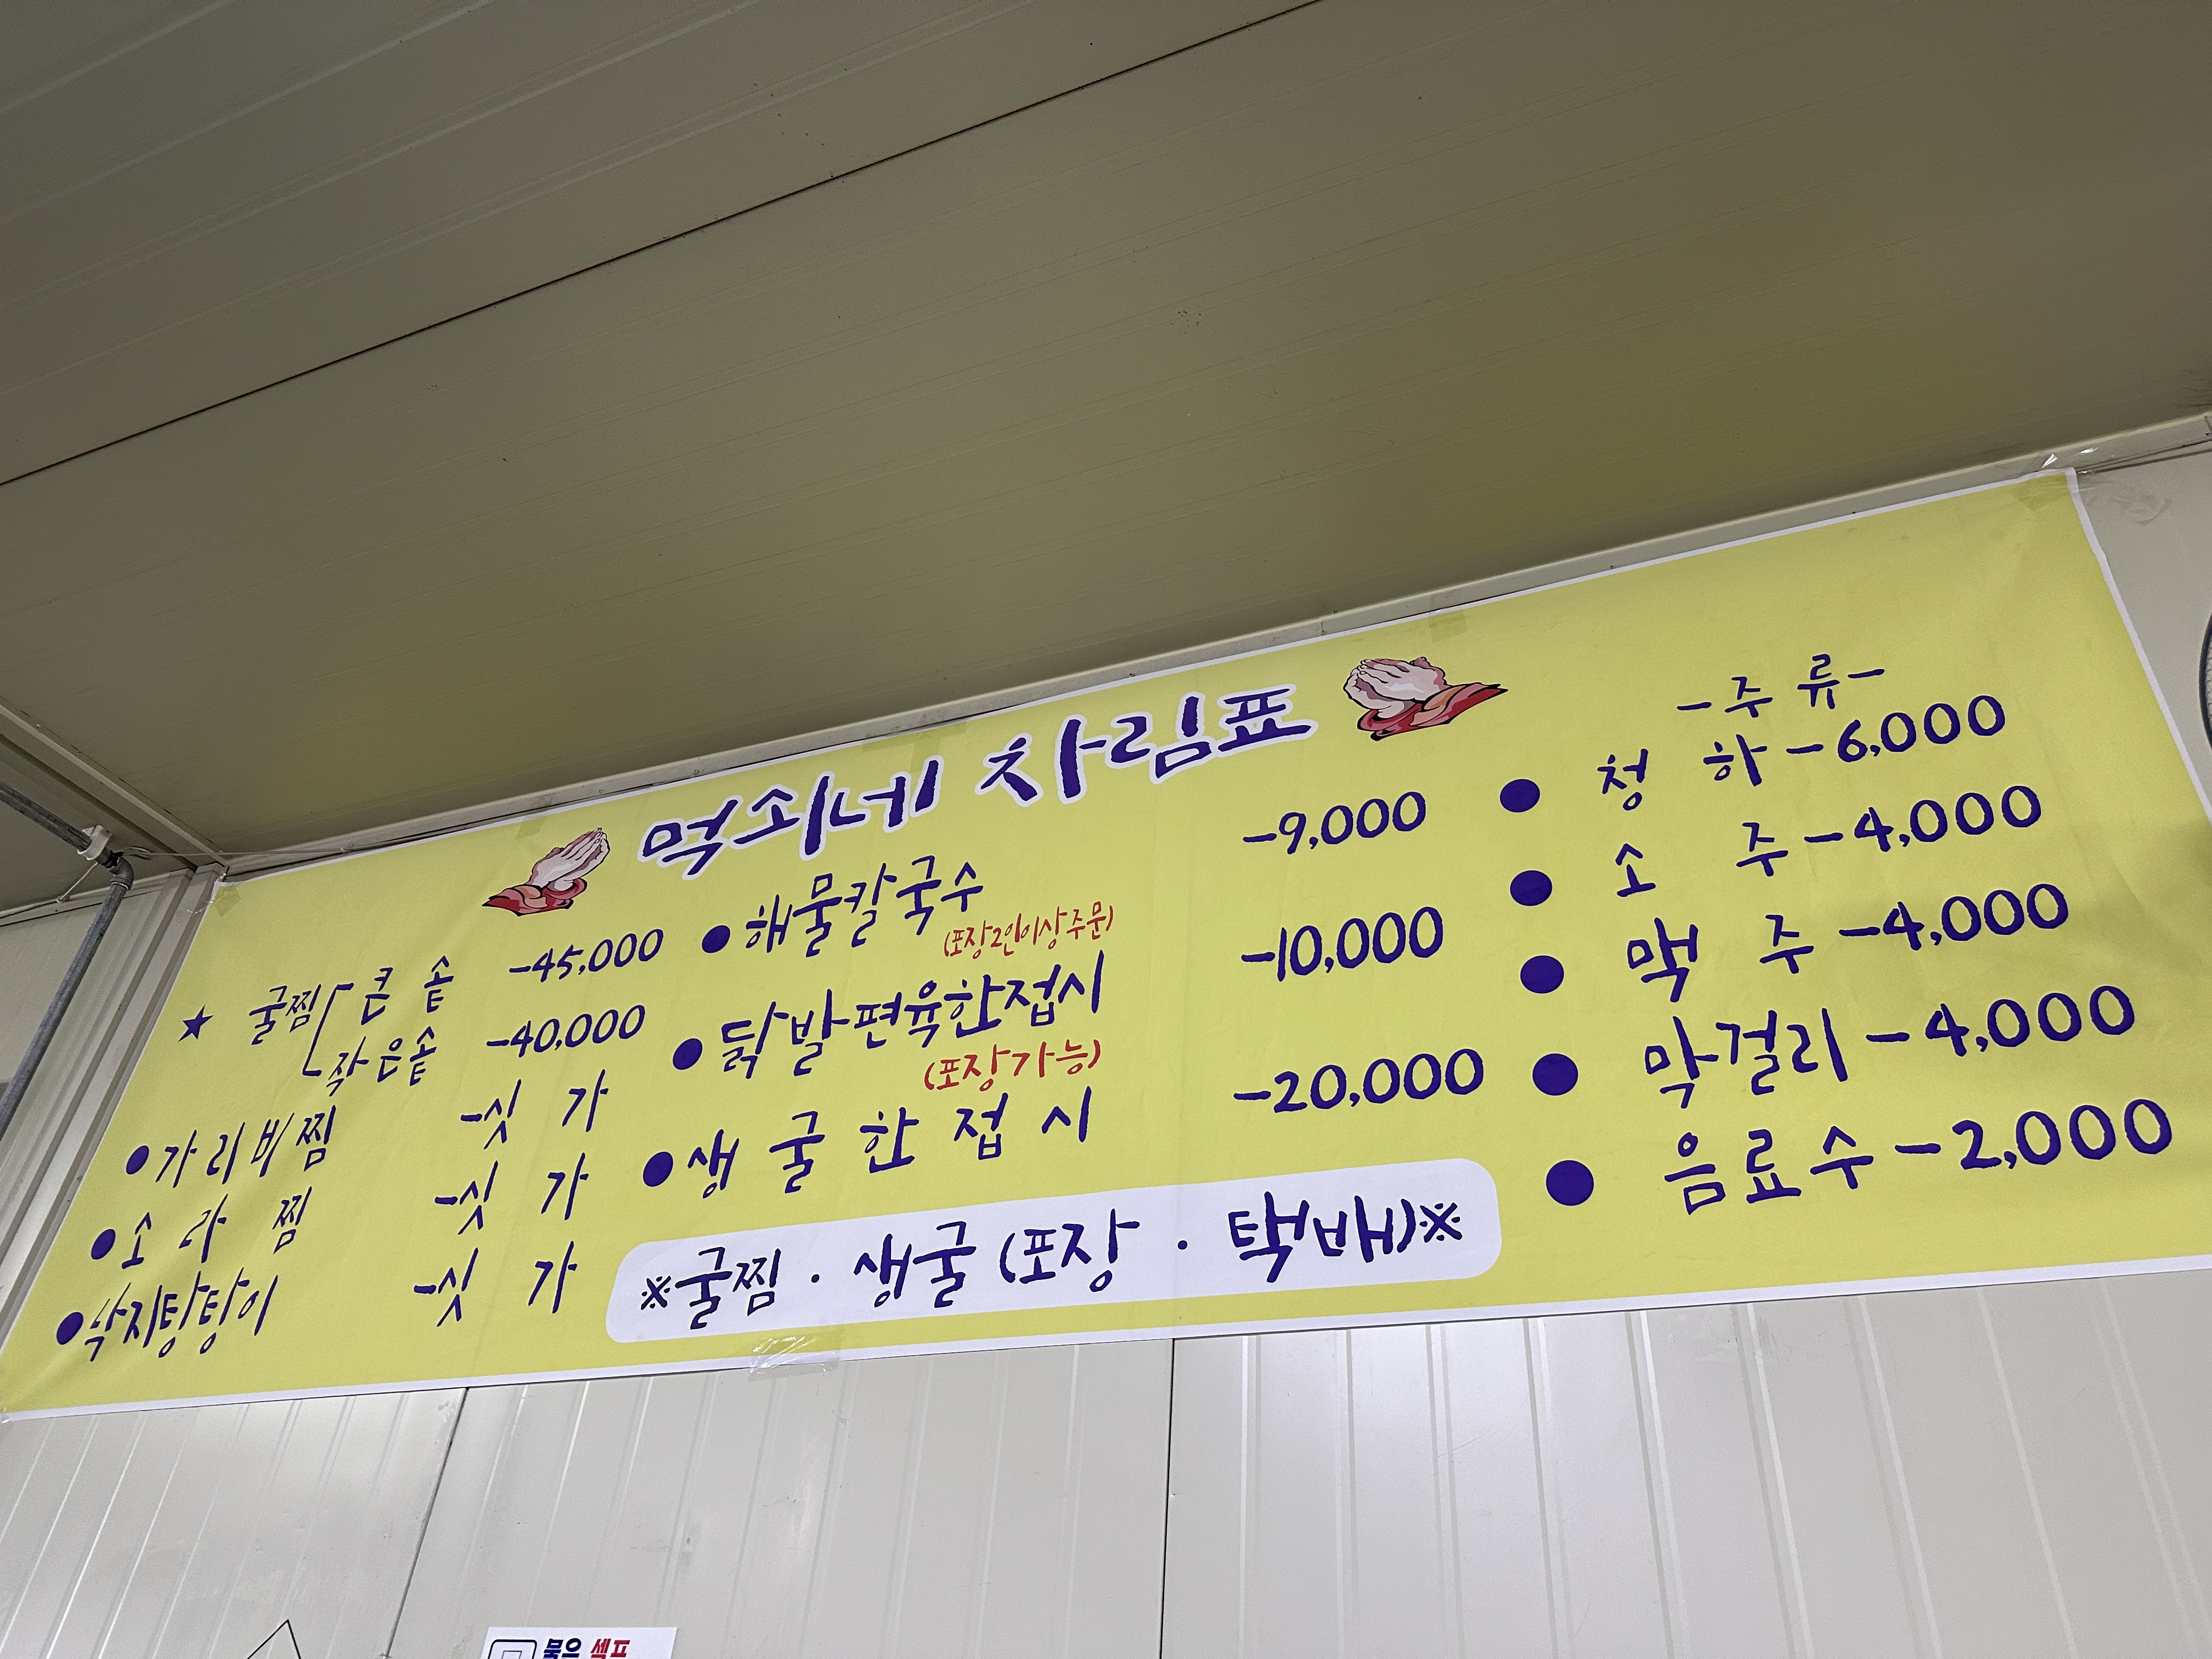 먹쇠네 차림표
★ 굴찜 큰 솥 -45,000
작은솥 -40,000
●가리비찜 -싯 가
●소 라 찜 -싯 가
●낙지탕탕이 -싯 가
●해물칼국수 -9,000
(포장2인이상주문)
●닭발편육한접시 -10,000
(포장가능)
●생 굴 한 접 시 -20,000
※굴찜 · 생굴 (포장 · 택배)※
-주 류-
● 청 하 -6,000
● 소 주 -4,000
● 맥 주 -4,000
● 막걸리 -4,000
● 음료수 -2,000
물은 셀프